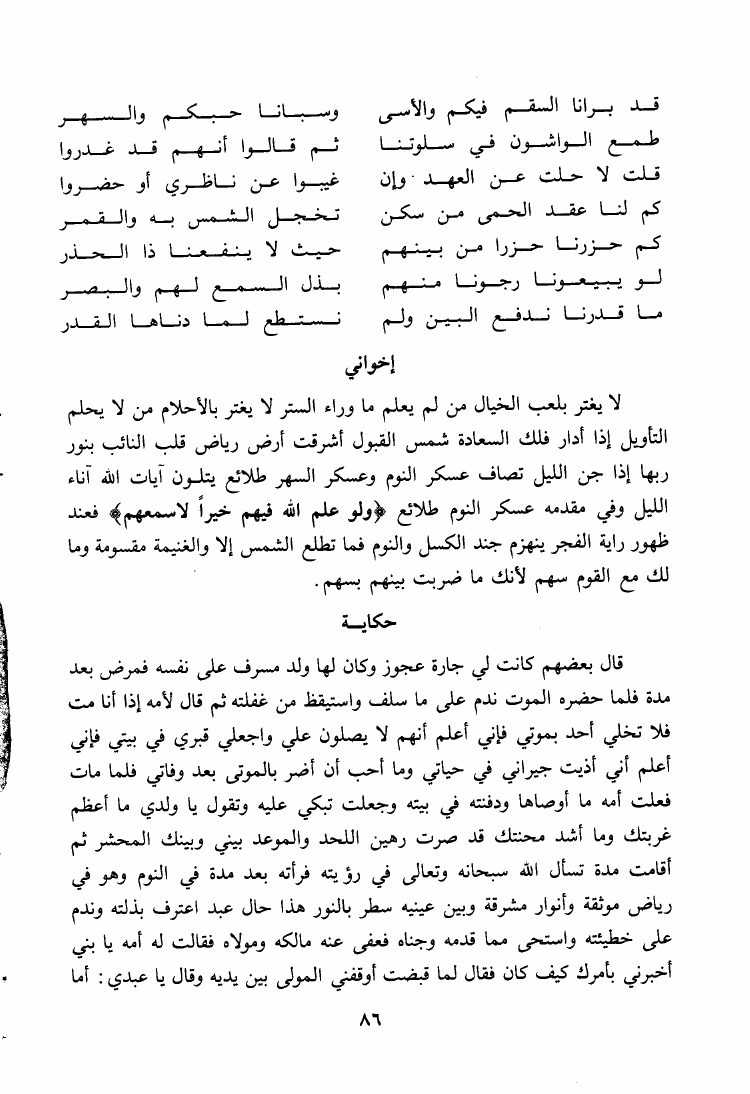 قد برانا السقم فيكم والأسى وسبانا حبكم والسهر
طمع الواشون في سلوتنا ثم قالوا أنهم قد غدروا
قلت لا حلت عن العهد وإن غيبوا عن ناظري أو حضروا
كم لنا عقد الحمى من سكن تخجل الشمس به والقمر
كم حزرنا حزرا من بينهم حيث لا ينفعنا ذا الحذر
لو يبيعونا رجونا منهم بذل السمع لهم والبصر
ما قدرنا ندفع البين ولم نستطع لما دناها القدر
إخواني
لا يغتر بلعب الخيال من لم يعلم ما وراء الستر لا يغتر بالأحلام من لا يحلم
التأويل إذا أدار فلك السعادة شمس القبول أشرقت أرض رياض قلب النائب بنور
ربها إذا جن الليل تصاف عسكر النوم وعسكر السهر طلائع يتلون آيات الله آناء
الليل وفي مقدمه عسكر النوم طلائع ﴿ولو علم الله فيهم خيراً لاسمعهم﴾ فعند
ظهور راية الفجر ينهزم جند الكسل والنوم فما تطلع الشمس إلا والغنيمة مقسومة وما
لك مع القوم سهم لأنك ما ضربت بينهم بسهم.
حكاية
قال بعضهم كانت لي جارة عجوز وكان لها ولد مسرف على نفسه فمرض بعد
مدة فلما حضره الموت ندم على ما سلف واستيقظ من غفلته ثم قال لأمه إذا أنا مت
فلا تخلي أحد بموتي فإني أعلم أنهم لا يصلون علي واجعلي قبري في بيتي فإني
أعلم أني أذيت جيراني في حياتي وما أحب أن أضر بالموتى بعد وفاتي فلما مات
فعلت أمه ما أوصاها ودفنته في بيته وجعلت تبكي عليه وتقول يا ولدي ما أعظم
غربتك وما أشد محنتك قد صرت رهين اللحد والموعد بيني وبينك المحشر ثم
أقامت مدة تسأل الله سبحانه وتعالى في رؤيته فرأته بعد مدة في النوم وهو في
رياض موثقة وأنوار مشرقة وبين عينيه سطر بالنور هذا حال عبد اعترف بذلته وندم
على خطيئته واستحى مما قدمه وجناه فعفى عنه مالكه ومولاه فقالت له أمه يا بني
أخبرني بأمرك كيف كان فقال لما قبضت أوقفني المولى بين يديه وقال يا عبدي : أما
٨٦